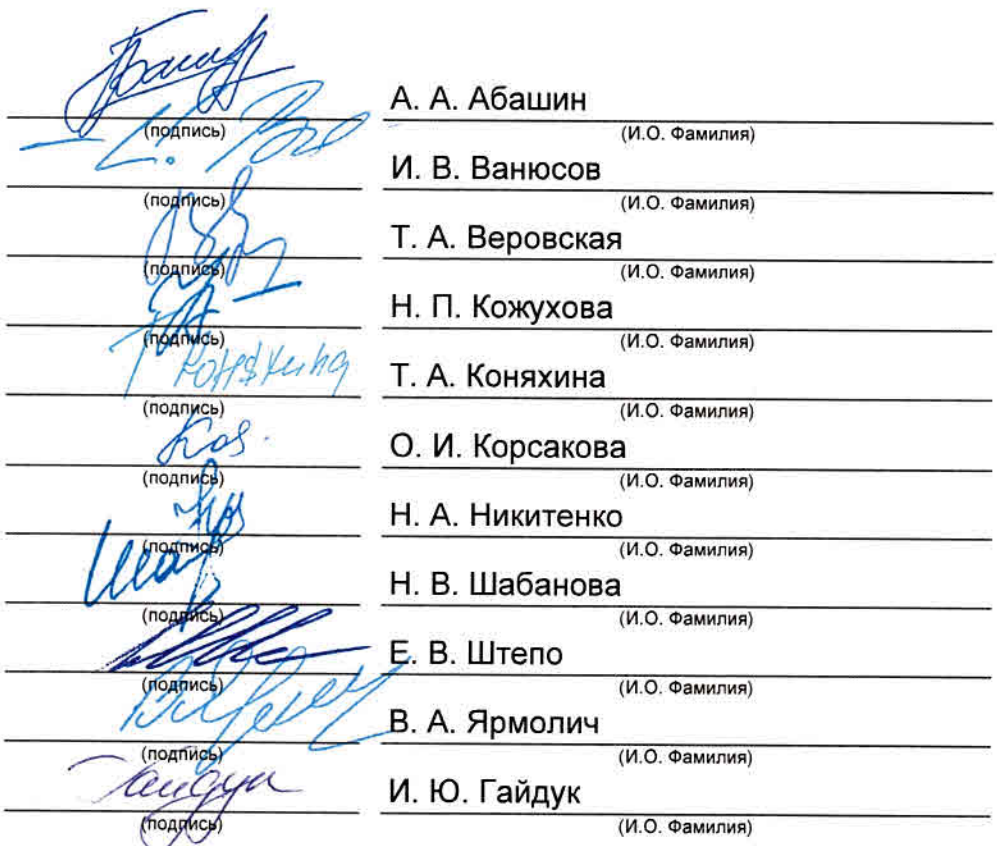 А. А. Абашин
(подпись) (И.О. Фамилия)
И. В. Ванюсов
(подпись) (И.О. Фамилия)
Т. А. Веровская
(подпись) (И.О. Фамилия)
Н. П. Кожухова
(подпись) (И.О. Фамилия)
Коняхина Т. А. Коняхина
(подпись) (И.О. Фамилия)
О. И. Корсакова
(подпись) (И.О. Фамилия)
Н. А. Никитенко
(подпись) (И.О. Фамилия)
Н. В. Шабанова
(подпись) (И.О. Фамилия)
Е. В. Штепо
(подпись) (И.О. Фамилия)
В. А. Ярмолич
(подпись) (И.О. Фамилия)
Гайдук И. Ю. Гайдук
(подпись) (И.О. Фамилия)